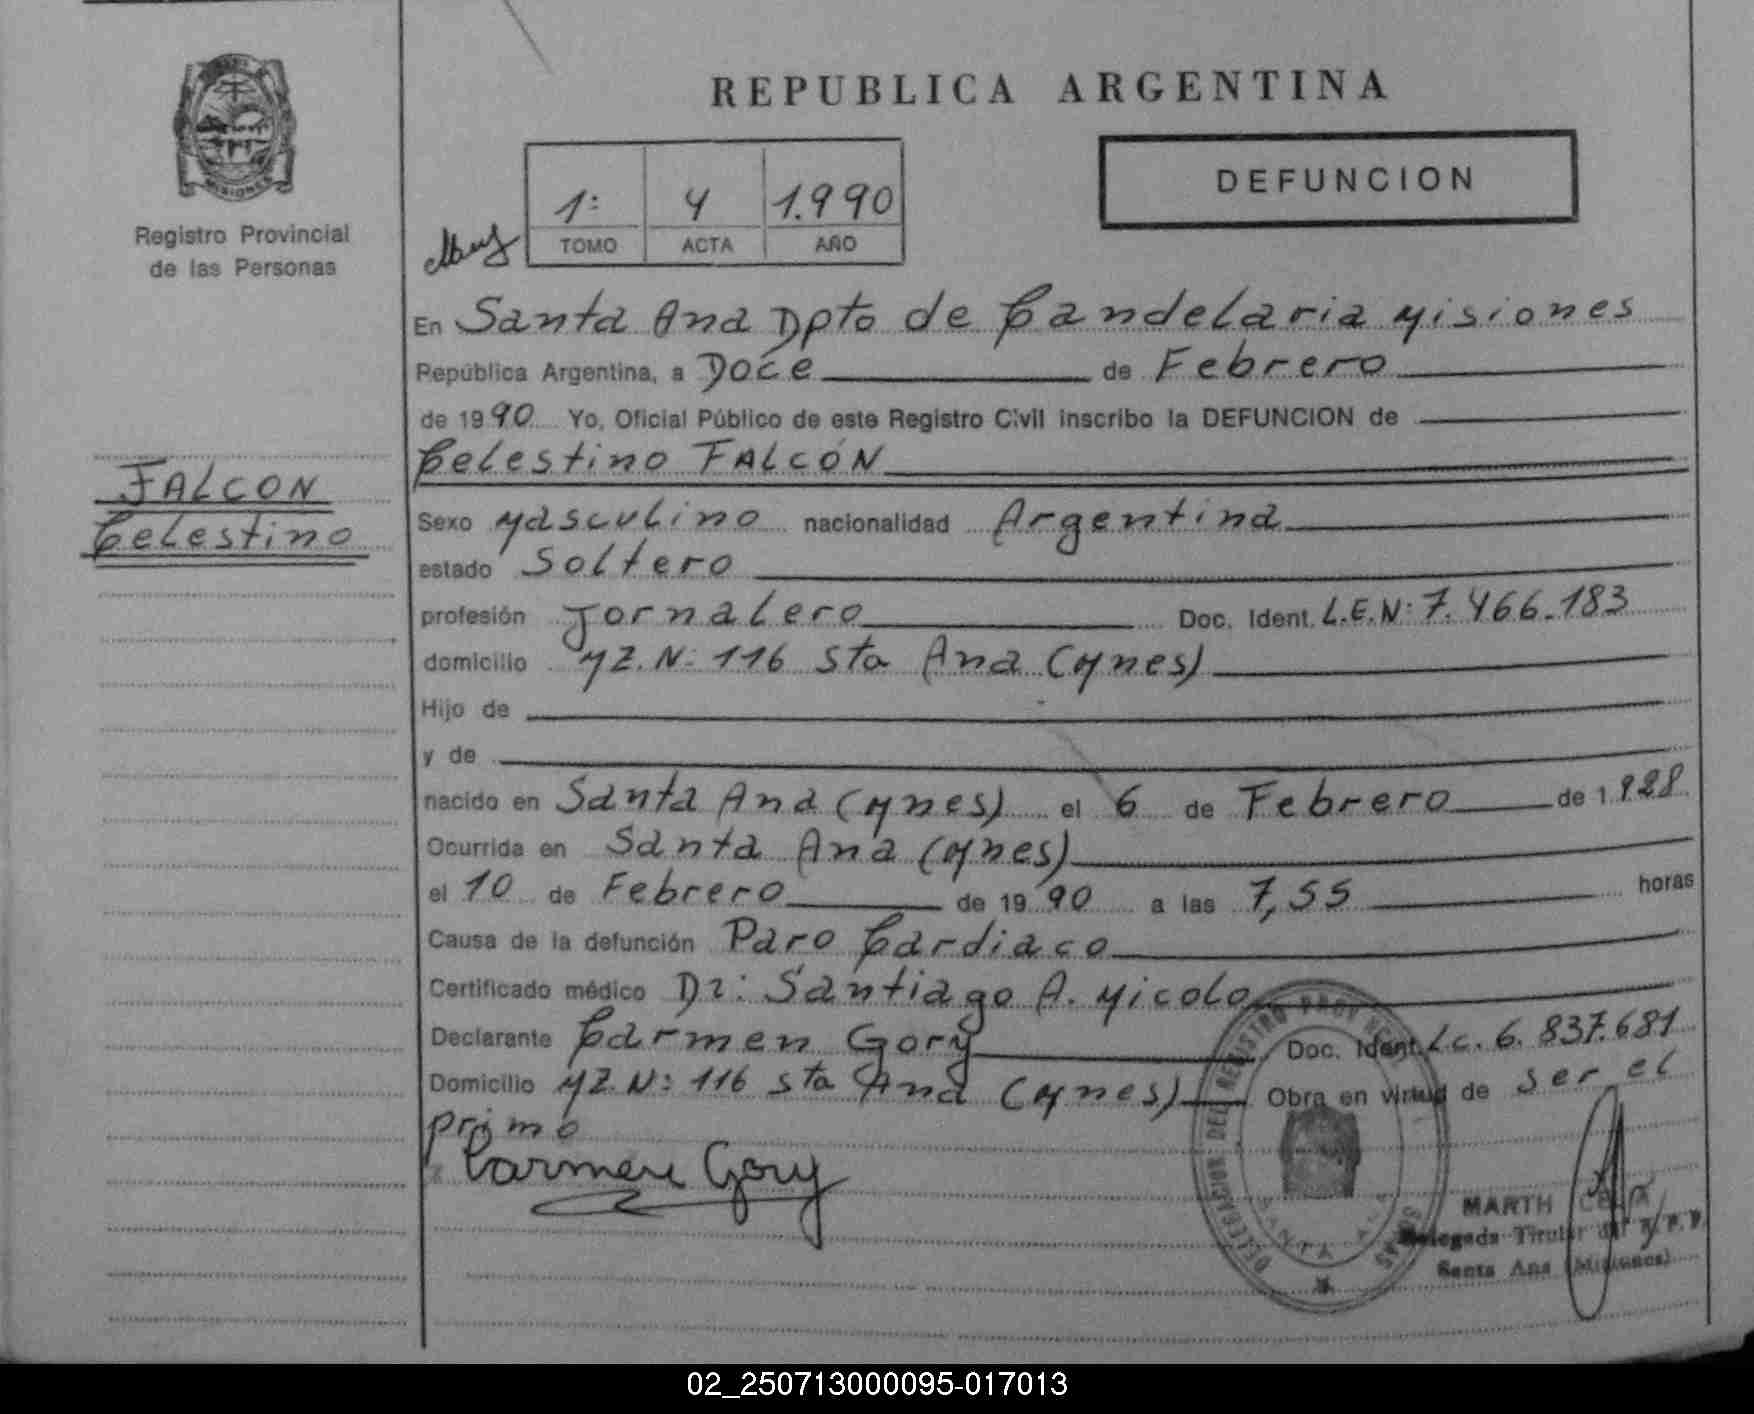 REPUBLICA ARGENTINA
MISIONES
Registro Provincial
de las Personas
1: 4 1.990
TOMO ACTA AÑO
DEFUNCION
En Santa Ana Dpto de Candelaria Misiones
República Argentina, a Doce de Febrero
de 1990 Yo, Oficial Público de este Registro Civil inscribo la DEFUNCION de
Celestino FALCÓN
FALCON
Celestino
Sexo Masculino nacionalidad Argentina
estado Soltero
profesión Jornalero Doc. Ident. L.E.N: 7.466.183
domicilio MZ.N: 116 Sta Ana (Mnes)
Hijo de
y de
nacido en Santa Ana (Mnes) el 6 de Febrero de 1.928
Ocurrida en Santa Ana (Mnes)
el 10 de Febrero de 1990 a las 7,55 horas
Causa de la defunción Paro Cardiaco
Certificado médico Dr: Santiago A. Micolo
Declarante Carmen Gory Doc. Ident. Lc. 6.837.681
Domicilio MZ.N: 116 Sta Ana (Mnes) Obra en virtud de ser el
primo
Carmen Gory
DELEGACION DEL REGISTRO PROVINCIAL
SANTA ANA
MARTH
Delegada Titular del R.P.P.
Santa Ana (Misiones)
02_250713000095-017013